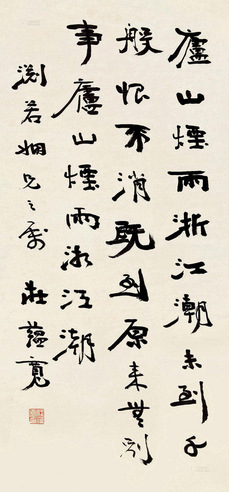 廬山煙雨浙江潮未到千
般恨不消既到原来無別
事廬山煙雨浙江潮
渊若姻兄之属 莊蘊寬